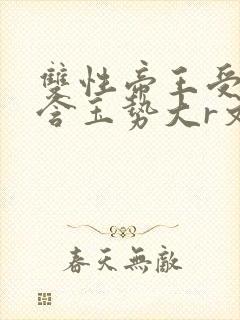 雙性帝王受
含玉勢大r文
春天無敵